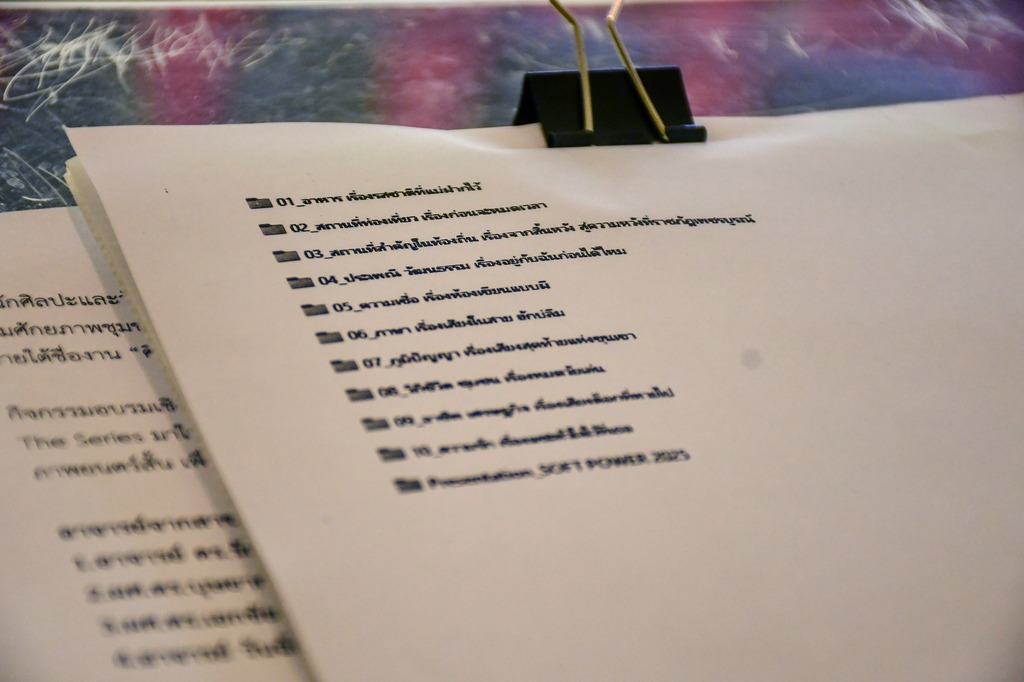 01_อาหาร เรื่องรสชาติที่แม่ฝากไว้
02_สถานที่ท่องเที่ยว เรื่องก่อนจะหมดเวลา
03_สถานที่สำคัญในท้องถิ่น เรื่องจากสิ้นหวัง สู่ความหวังที่ราชภัฏเพชรบูรณ์
04_ประเพณี วัฒนธรรม เรื่องอยู่กับฉันก่อนได้ไหม
05_ความเชื่อ เรื่องห้องเขียนแบบผี
06_ภาษา เรื่องเสียงในสาย ฮักบ่ลืม
07_ภูมิปัญญา เรื่องเสียงสุดท้ายแห่งขุนเขา
08_วิถีชีวิต ชุมชน เรื่องหมอวัยเก่น
09_อาชีพ เศรษฐกิจ เรื่องเสียงล้อกที่หายไป
10_ความรัก
Presentation_SOFT POWER 2025
ักศิลปะและ
มศักยภาพชุมช
ายใต้ชื่องาน "
กิจกรรมอบรมเชิ
The Series มาใ
ภาพยนตร์สั้น เพื่
อาจารย์จากสาข
1.อาจารย์ ดร.
2.ผศ.ดร.บุษบา
3.ผศ.ดร.เอก
4.อาจารย์ วัน